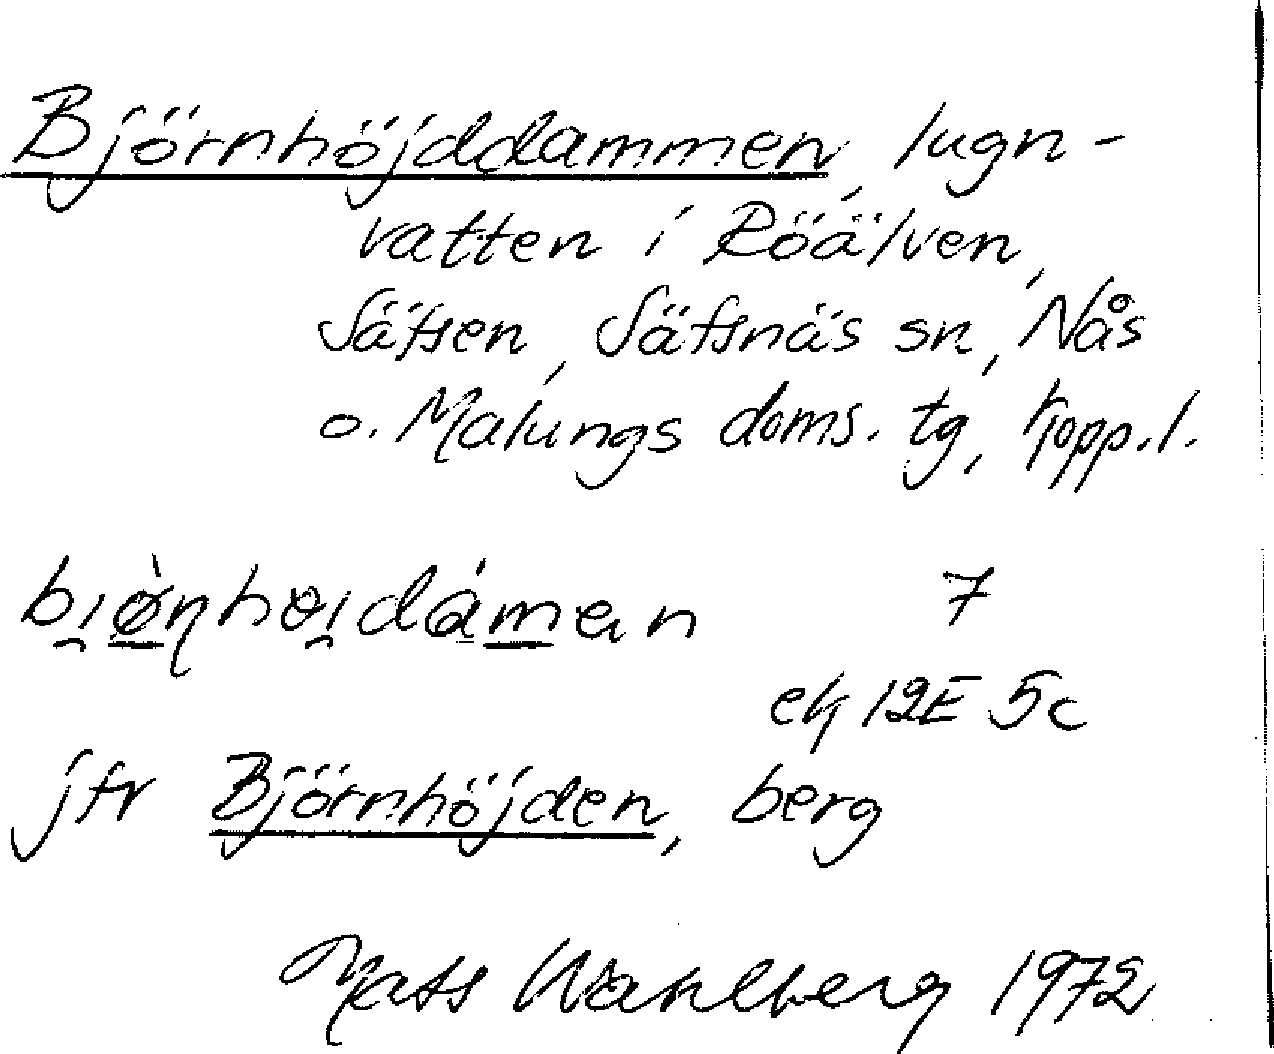 Björnhöjddammen, lugn-
vatten i Röälven,
Säfsen, Säfsnäs sn, Nås
o. Malungs doms. tg, Kopp.l.
bi̯ø̀ṇhøi̯dámən 7
ek 12E 5c
jfr Björnhöjden, berg
Mats Wahlberg 1972